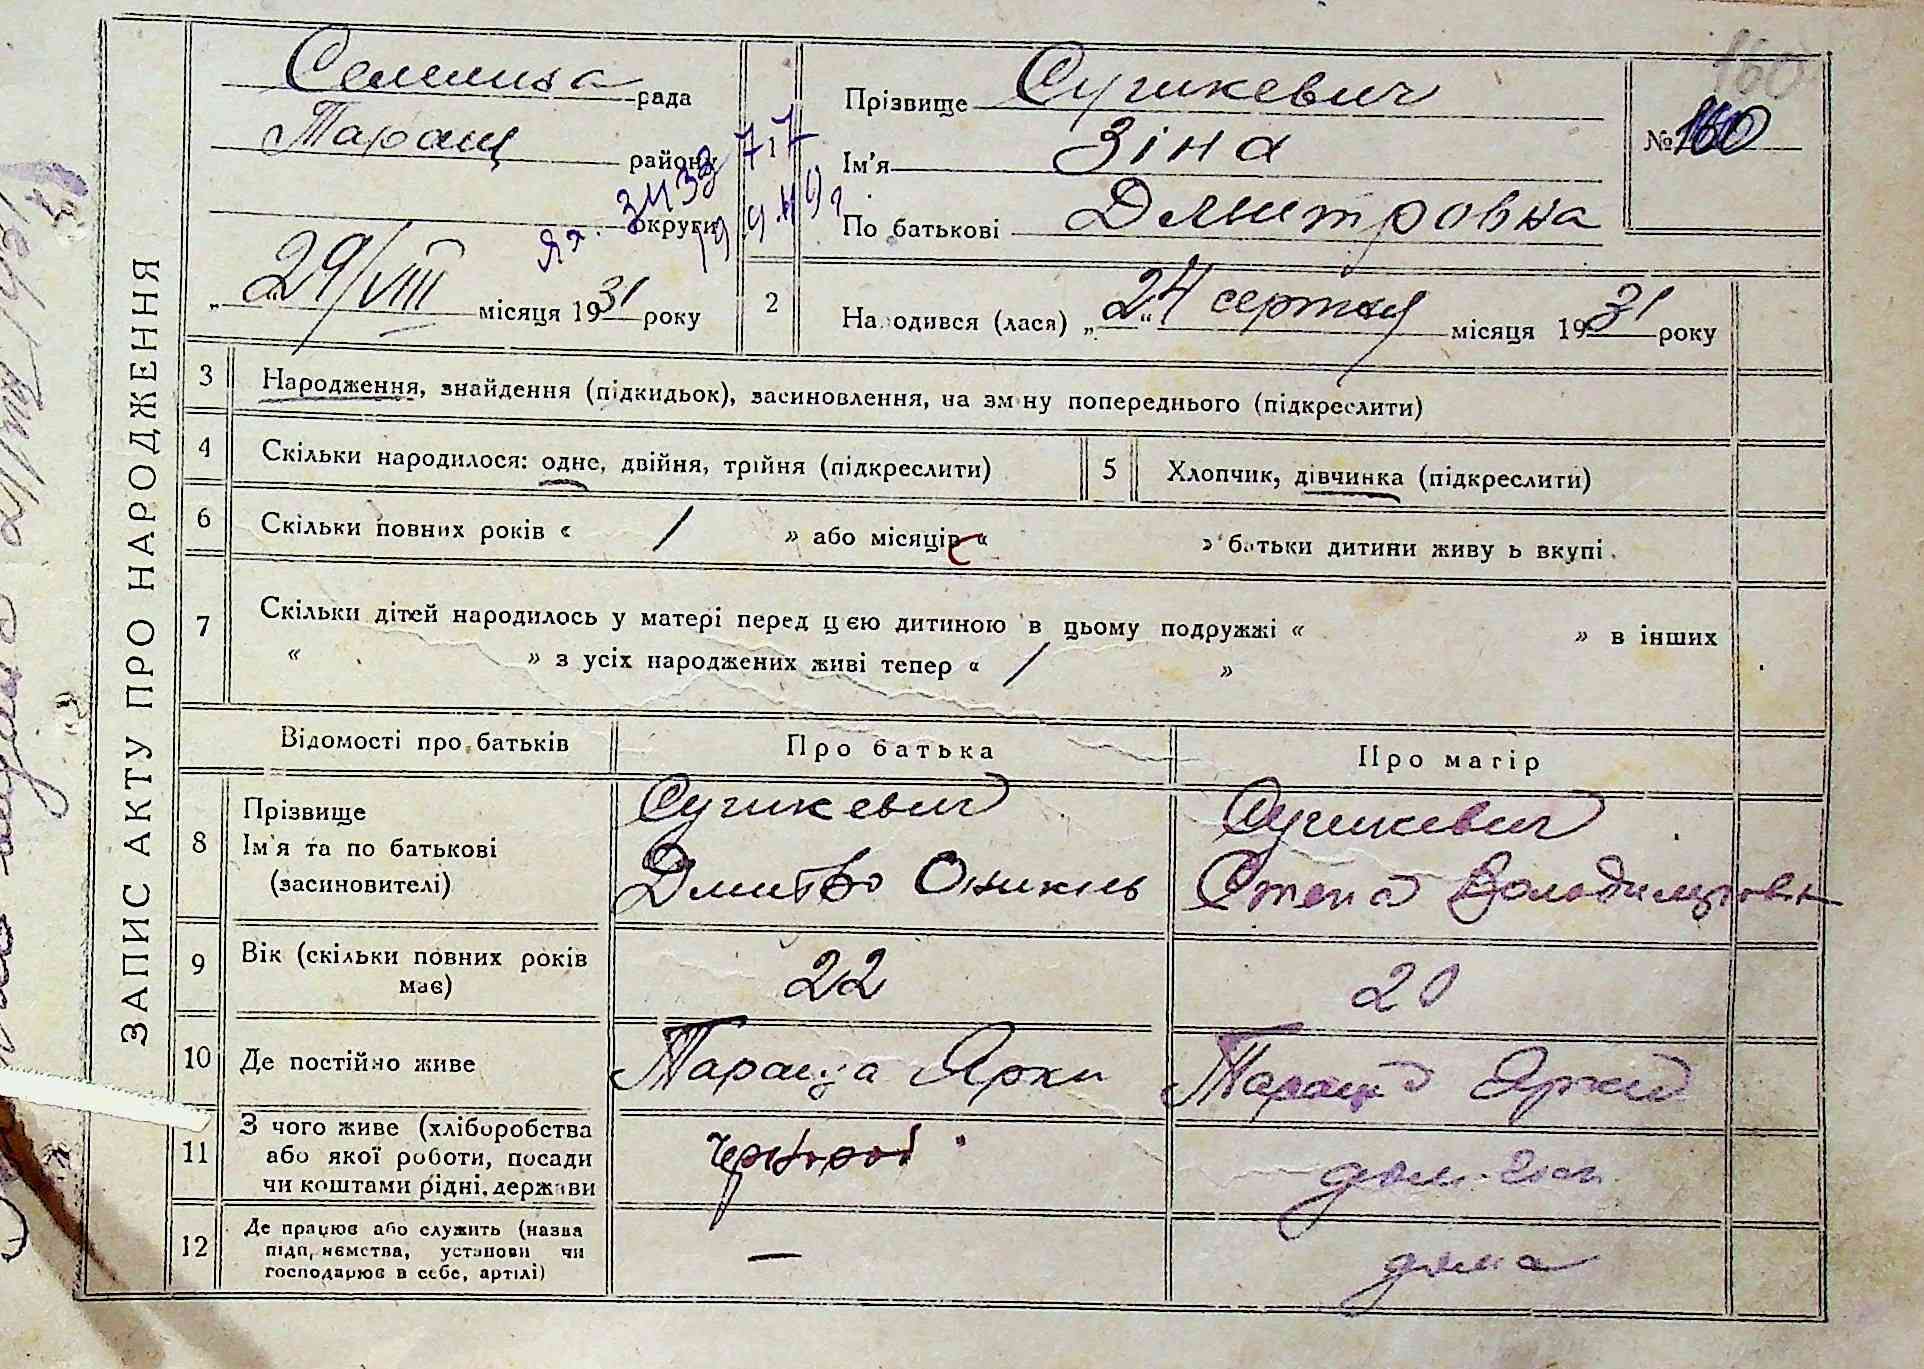 160
ЗАПИС АКТУ ПРО НАРОДЖЕННЯ
Селищна рада
Таращ району
округи
„29/VIII“ місяця 1931 року
Прізвище Сушкевич
Ім'я Зіна
По батькові Дмитровна
№ 160
2 Народився (лася) „24“ серпня місяця 1931 року
3 Народження, знайдення (підкидьок), засиновлення, на зміну попереднього (підкреслити)
4 Скільки народилося: одне, двійня, трійня (підкреслити)
5 Хлопчик, дівчинка (підкреслити)
6 Скільки повних років « / » або місяців « » батьки дитини живуть вкупі.
7 Скільки дітей народилось у матері перед цією дитиною в цьому подружжі « » в інших
« » з усіх народжених живі тепер « / »
Відомості про батьків Про батька Про матір
8 Прізвище
Ім'я та по батькові
(засиновителі)
Сушкевич
Дмитро
Сушкевич
Степа Володимировн
9 Вік (скільки повних років
має)
22
20
10 Де постійно живе
Тараща Ярки
Тараща Ярки
11 З чого живе (хліборобства
або якої роботи, посади
чи коштами рідні, держави
чернороб
дом. госп.
12 Де працює або служить (назва
підприємства, установи чи
господарює в себе, артілі)
—
дома